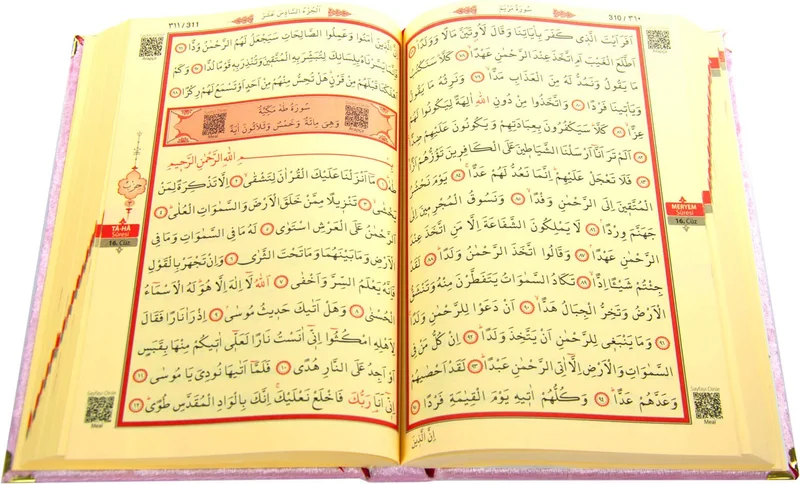 سُورَةُ مَرْيَمَ
310 / ٣١٠
اَفَرَاَيْتَ الَّذ۪ي كَفَرَ بِاٰيَاتِنَا وَقَالَ لَاُو۫تَيَنَّ مَالًا وَوَلَدًاۜ
اَطَّلَعَ الْغَيْبَ اَمِ اتَّخَذَ عِنْدَ الرَّحْمٰنِ عَهْدًاۙ ﴿٧٨﴾ كَلَّاۜ سَنَكْتُبُ
مَا يَقُولُ وَنَمُدُّ لَهُ مِنَ الْعَذَابِ مَدًّاۙ ﴿٧٩﴾ وَنَرِثُهُ مَا يَقُولُ
وَيَأْت۪ينَا فَرْدًا ﴿٨٠﴾ وَاتَّخَذُوا مِنْ دُونِ اللّٰهِ اٰلِهَةً لِيَكُونُوا لَهُمْ
عِزًّاۙ ﴿٨١﴾ كَلَّاۜ سَيَكْفُرُونَ بِعِبَادَتِهِمْ وَيَكُونُونَ عَلَيْهِمْ ضِدًّا
﴿٨٢﴾ اَلَمْ تَرَ اَنَّٓا اَرْسَلْنَا الشَّيَاط۪ينَ عَلَى الْكَافِر۪ينَ تَؤُزُّهُمْ اَزًّاۙ
﴿٨٣﴾ فَلَا تَعْجَلْ عَلَيْهِمْۜ اِنَّمَا نَعُدُّ لَهُمْ عَدًّاۚ ﴿٨٤﴾ يَوْمَ نَحْشُرُ
الْمُتَّق۪ينَ اِلَى الرَّحْمٰنِ وَفْدًاۙ ﴿٨٥﴾ وَنَسُوقُ الْمُجْرِم۪ينَ اِلٰى
جَهَنَّمَ وِرْدًاۢ ﴿٨٦﴾ لَا يَمْلِكُونَ الشَّفَاعَةَ اِلَّا مَنِ اتَّخَذَ عِنْدَ
الرَّحْمٰنِ عَهْدًاۢ ﴿٨٧﴾ وَقَالُوا اتَّخَذَ الرَّحْمٰنُ وَلَدًاۜ ﴿٨٨﴾ لَقَدْ
جِئْتُمْ شَيْـًٔا اِدًّاۙ ﴿٨٩﴾ تَكَادُ السَّمٰوَاتُ يَتَفَطَّرْنَ مِنْهُ وَتَنْشَقُّ
الْاَرْضُ وَتَخِرُّ الْجِبَالُ هَدًّاۙ ﴿٩٠﴾ اَنْ دَعَوْا لِلرَّحْمٰنِ وَلَدًاۚ
﴿٩١﴾ وَمَا يَنْبَغ۪ي لِلرَّحْمٰنِ اَنْ يَتَّخِذَ وَلَدًاۜ ﴿٩٢﴾ اِنْ كُلُّ مَنْ فِي
السَّمٰوَاتِ وَالْاَرْضِ اِلَّٓا اٰتِي الرَّحْمٰنِ عَبْدًاۜ ﴿٩٣﴾ لَقَدْ اَحْصٰيهُمْ
وَعَدَّهُمْ عَدًّاۜ ﴿٩٤﴾ وَكُلُّهُمْ اٰت۪يهِ يَوْمَ الْقِيٰمَةِ فَرْدًا ﴿٩٥﴾
اِنَّ الَّذ۪ينَ
MERYEM
Sûresi
16. Cüz
Meal
اَلْجُزْءُ السَّادِسَ عَشَرَ
311 / ٣١١
اِنَّ الَّذ۪ينَ اٰمَنُوا وَعَمِلُوا الصَّالِحَاتِ سَيَجْعَلُ لَهُمُ الرَّحْمٰنُ وُدًّا ﴿٩٦﴾
فَاِنَّمَا يَسَّرْنَاهُ بِلِسَانِكَ لِتُبَشِّرَ بِهِ الْمُتَّق۪ينَ وَتُنْذِرَ بِه۪ قَوْمًا لُدًّا ﴿٩٧﴾ وَكَمْ
اَهْلَكْنَا قَبْلَهُمْ مِنْ قَرْنٍۜ هَلْ تُحِسُّ مِنْهُمْ مِنْ اَحَدٍ اَوْ تَسْمَعُ لَهُمْ رِكْزًا ﴿٩٨﴾
سُورَةُ طٰهٰ مَكِّيَّةٌ
وَهِيَ مِائَةٌ وَخَمْسٌ وَثَلَاثُونَ اٰيَةً
Meal
بِسْمِ اللّٰهِ الرَّحْمٰنِ الرَّح۪يمِ
طٰهٰۜ ﴿١﴾ مَٓا اَنْزَلْنَا عَلَيْكَ الْقُرْاٰنَ لِتَشْقٰىۙ ﴿٢﴾ اِلَّا تَذْكِرَةً لِمَنْ
يَخْشٰىۙ ﴿٣﴾ تَنْز۪يلًا مِمَّنْ خَلَقَ الْاَرْضَ وَالسَّمٰوَاتِ الْعُلٰىۜ ﴿٤﴾
اَلرَّحْمٰنُ عَلَى الْعَرْشِ اسْتَوٰى ﴿٥﴾ لَهُ مَا فِي السَّمٰوَاتِ وَمَا فِي
الْاَرْضِ وَمَا بَيْنَهُمَا وَمَا تَحْتَ الثَّرٰى ﴿٦﴾ وَاِنْ تَجْهَرْ بِالْقَوْلِ
فَاِنَّهُ يَعْلَمُ السِّرَّ وَاَخْفٰى ﴿٧﴾ اَللّٰهُ لَٓا اِلٰهَ اِلَّا هُوَۜ لَهُ الْاَسْمَٓاءُ
الْحُسْنٰى ﴿٨﴾ وَهَلْ اَتٰيكَ حَد۪يثُ مُوسٰىۢ ﴿٩﴾ اِذْ رَاٰ نَارًا فَقَالَ
لِاَهْلِهِ امْكُثُٓوا اِنّ۪ٓي اٰنَسْتُ نَارًا لَعَلّ۪ٓي اٰت۪يكُمْ مِنْهَا بِقَبَسٍ
اَوْ اَجِدُ عَلَى النَّارِ هُدًى ﴿١٠﴾ فَلَمَّٓا اَتٰيهَا نُودِيَ يَا مُوسٰىۜ ﴿١١﴾
اِنّ۪ٓي اَنَا۬ رَبُّكَ فَاخْلَعْ نَعْلَيْكَۚ اِنَّكَ بِالْوَادِ الْمُقَدَّسِ طُوًىۜ ﴿١٢﴾
حِزْبٌ
TÂ-HÂ
Sûresi
16. Cüz
Sayfayı Dinle
Meal